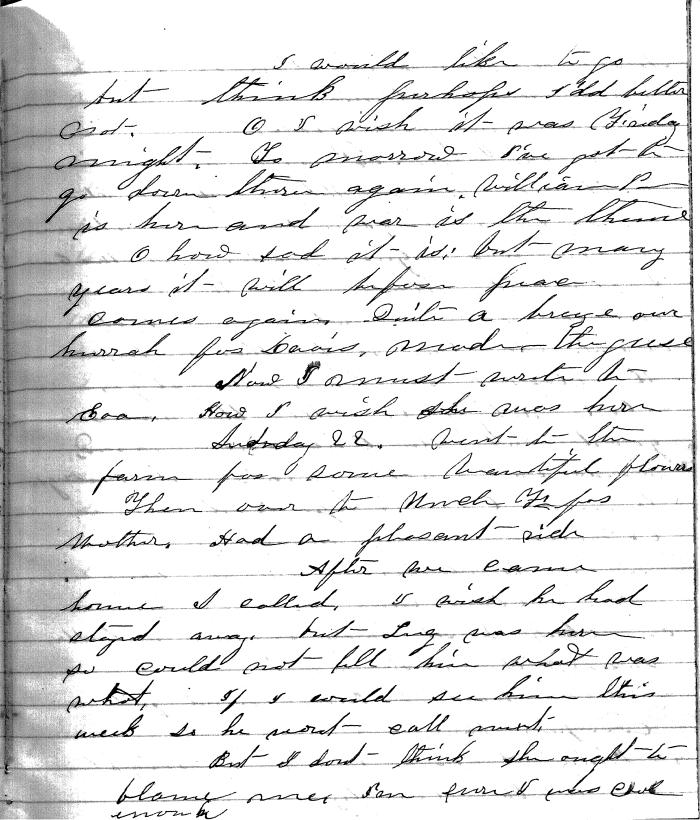 I would like to go
but think perhaps I'dd better
not. O I wish it was Friday
night. To morrow I've got to
go down there again. William P
is here and war is the theme
O how sad it is; but many
years it will before peace
comes again. Quite a breeze our
hurrah for Davis, made the
Now I must write to
Eva. How I wish she was here
Sunday 22. Went to the
farm for some beautiful flowers
Then over to Uncle for
Mother. Had a pleasant ride
After we came
home I called. I wish he had
stayd away. but Lug was here
so could not tell him what was
what. If I could see him this
week so he wont call next.
But I dont think she ought to
blame me, I'm sure I was cool
enough